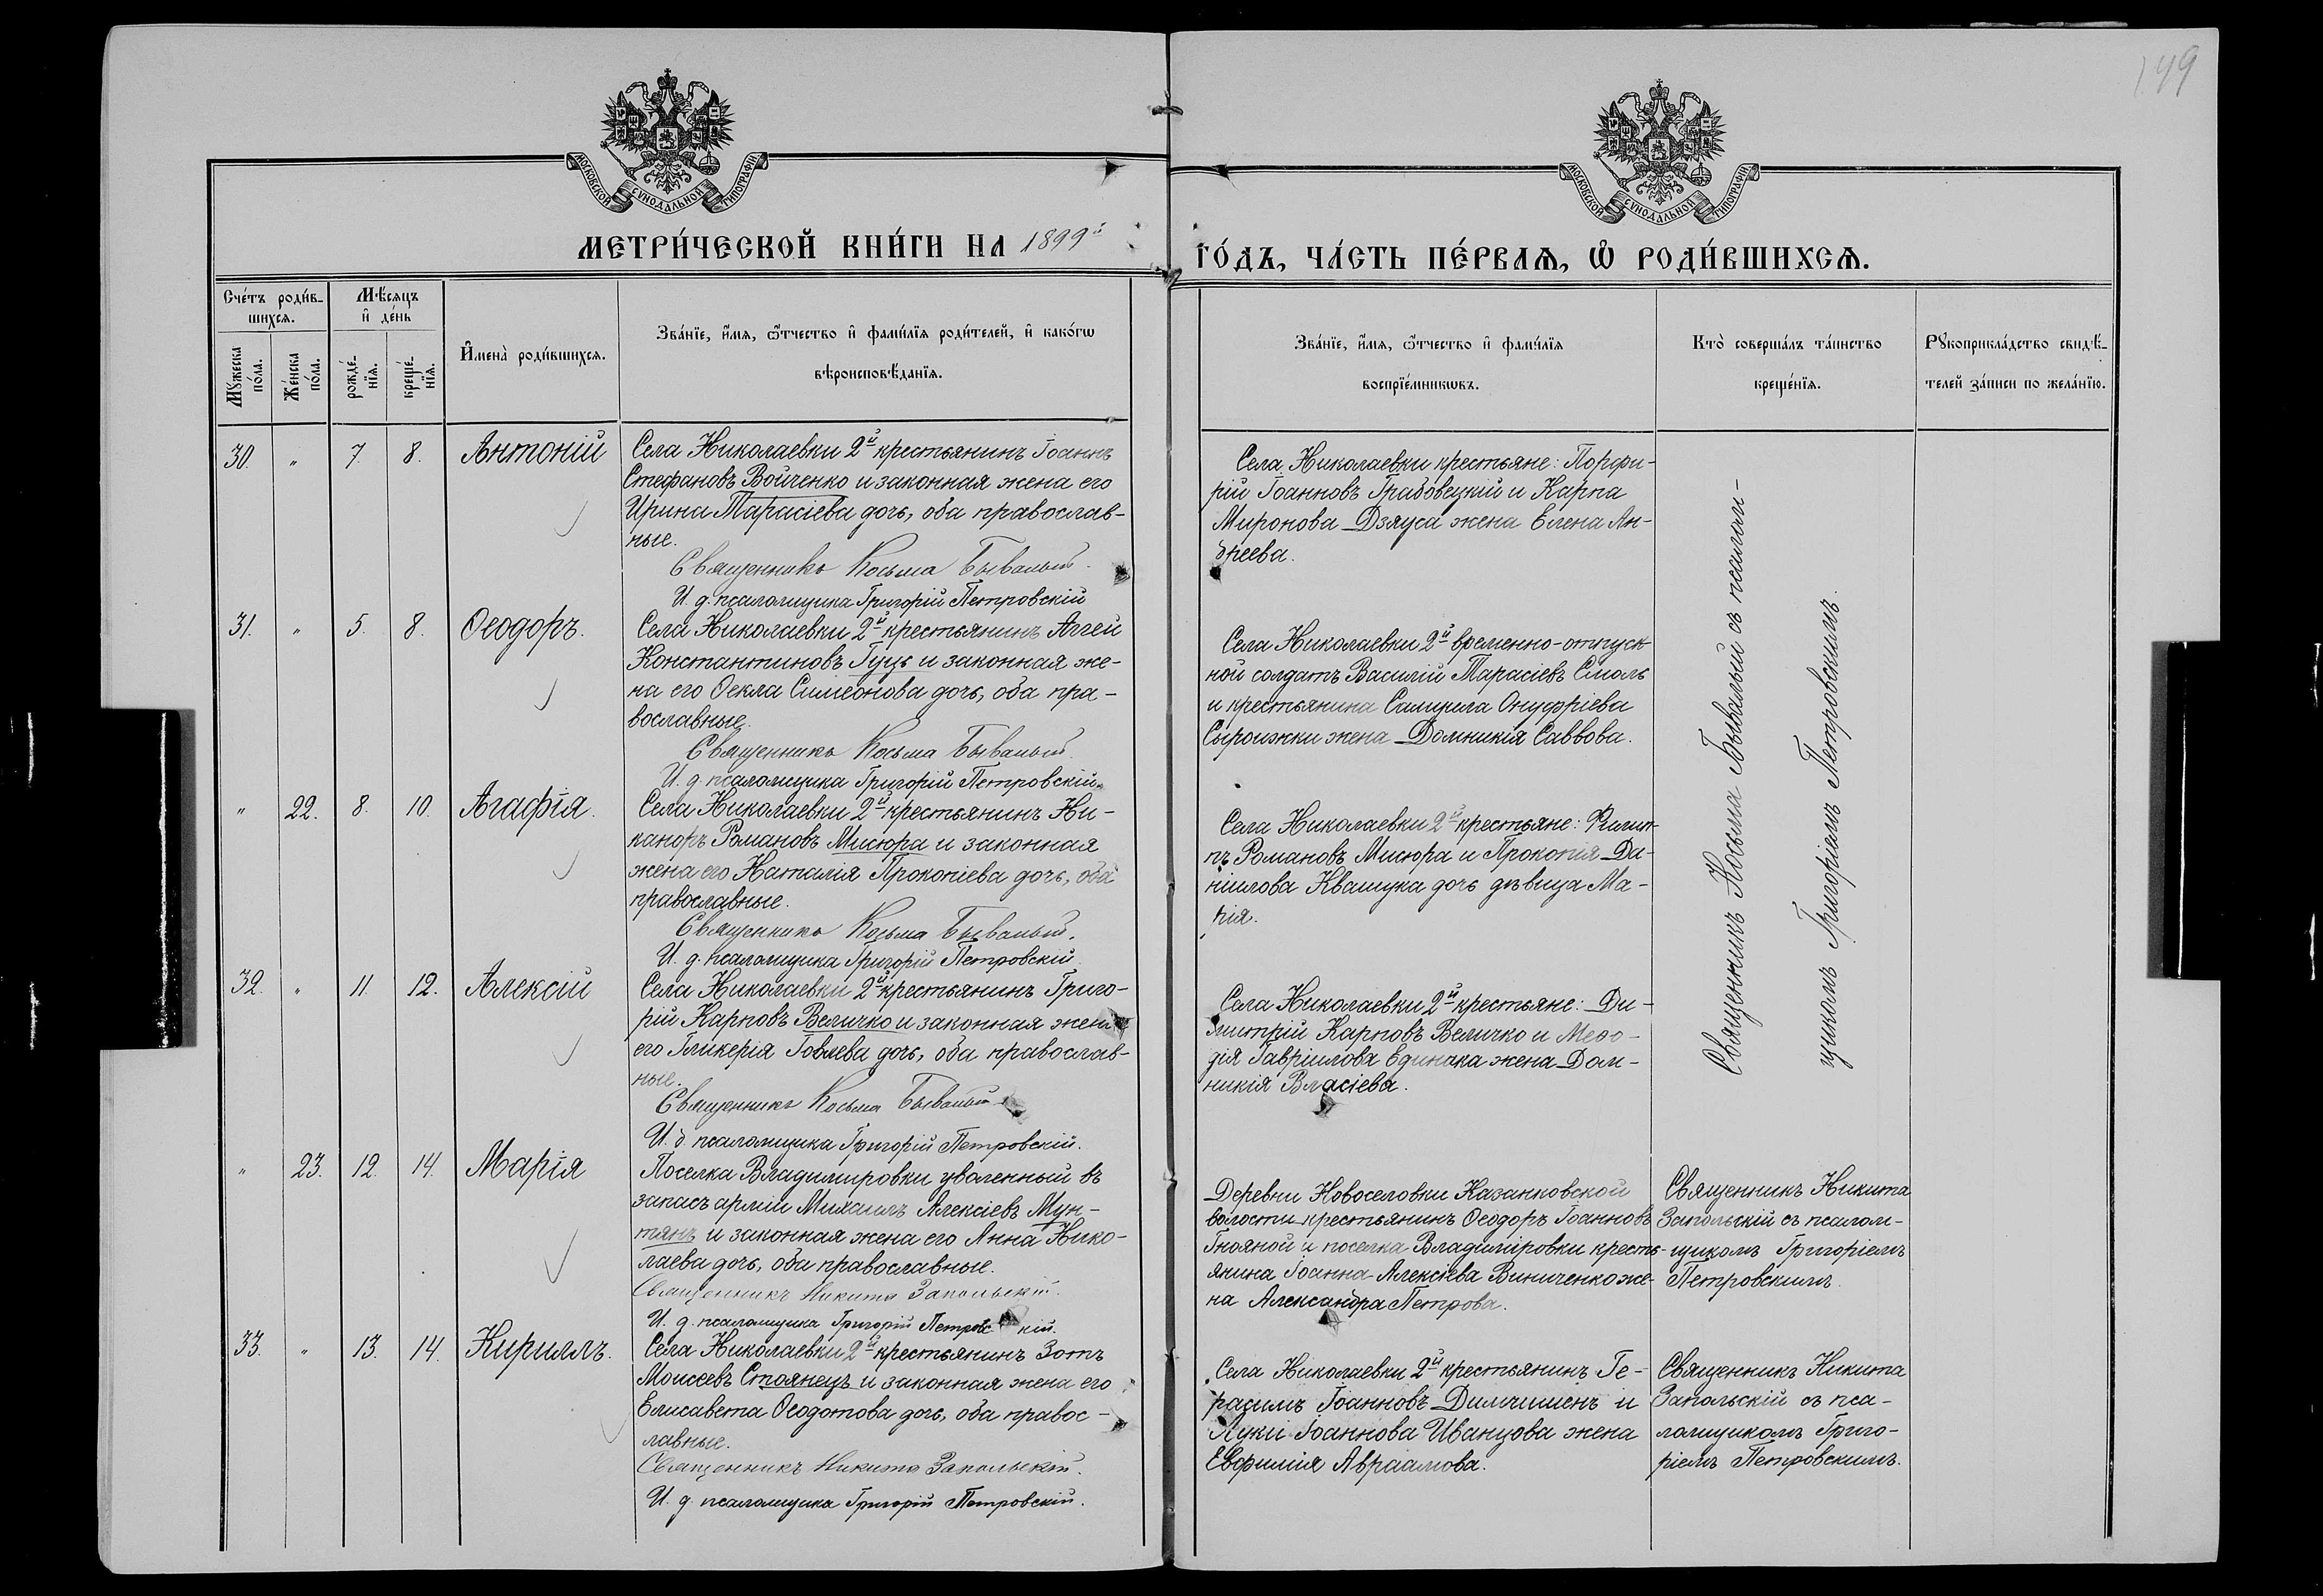 149
МОСКОВСКОЙ СѴНОДАЛЬНОЙ ТИПОГРАФІИ
МОСКОВСКОЙ СѴНОДАЛЬНОЙ ТИПОГРАФІИ
МЕТРИ́ЧЕСКОЙ КНИ́ГИ НА 1899й
ГО́ДЪ, ЧА́СТЬ ПЕ́РВАѦ, Ѡ҆ РОДИ́ВШИХСѦ.
Сче́тъ роди́в-
шихсѧ.
Мꙋ́жеска
по́ла.
Же́нска
по́ла.
Мѣ́сѧцъ
и҆ де́нь
рожде́-
нїѧ.
креще́-
нїѧ.
И҆мена̀ роди́вшихсѧ.
Зва́нїе, и҆́мѧ, ѻ҆́тчество и҆ фами́лїѧ роди́телей, и҆ како́гѡ
вѣроисповѣ́данїѧ.
Зва́нїе, и҆́мѧ, ѻ҆́тчество и҆ фами́лїѧ
воспрїе́мникѡвъ.
Кто̀ соверша́лъ та́инство
креще́нїѧ.
Рꙋкоприкла́дство свидѣ́-
телей за́писи по жела́нїю.
30. " 7. 8. Антоній
Села Николаевки 2й крестьянинъ Іоаннъ
Стефановъ Войченко и законная жена его
Ирина Тарасіева дочь, оба православ-
ные.
Священникъ Косьма Бывалый.
И. д. псаломщика Григорій Петровскій
Села Николаевки крестьяне: Порфи-
рій Іоанновъ Грабовецкій и Карпа
Миронова Дзяуса жена Елена Ан-
дреева.
Священникъ Косьма Бывалый съ псалом-
щикомъ Григоріемъ Петровскимъ.
31. " 5. 8. Ѳеодоръ.
Села Николаевки 2й крестьянинъ Аггей
Константиновъ Гуцъ и законная же-
на его Ѳекла Симеонова дочь, оба пра-
вославные.
Священникъ Косьма Бывалый.
И. д. псаломщика Григорій Петровскій.
Села Николаевки 2й временно-отпуск-
ной солдатъ Василій Тарасіевъ Смоль
и крестьянина Самуила Онуфріева
Сыроижки жена Домникія Саввова.
" 22. 8. 10. Агафія.
Села Николаевки 2й крестьянинъ Ни-
каноръ Романовъ Мисюра и законная
жена его Наталія Прокопіева дочь, оба
православные.
Священникъ Косьма Бывалый.
И. д. псаломщика Григорій Петровскій
Села Николаевки 2й крестьяне: Филип-
пъ Романовъ Мисюра и Прокопія Да-
ніилова Квашука дочь дѣвица Ма-
рія.
32. " 11. 12. Алексій
Села Николаевки 2й крестьянинъ Григо-
рій Карповъ Величко и законная жена
его Гликерія Іовлева дочь, оба православ-
ные.
Священникъ Косьма Бывалый.
И. д. псаломщика Григорій Петровскій.
Села Николаевки 2й крестьяне: Ди-
митрій Карповъ Величко и Меѳо-
дія Гавріилова Единака жена Дом-
никія Власіева.
" 23. 12. 14. Марія
Поселка Владимировки уволенный въ
запасъ арміи Михаилъ Алексіевъ Мун-
тянъ и законная жена его Анна Нико-
лаева дочь, оба православные.
Священникъ Никита Запольскій.
И. д. псаломщика Григорій Петровскій.
Деревни Новоселовки Казанковской
волости крестьянинъ Ѳеодоръ Іоанновъ
Гнояной и поселка Владиміровки кресть-
янина Іоанна Алексіева Виниченко же-
на Александра Петрова.
Священникъ Никита
Запольскій съ псалом-
щикомъ Григоріемъ
Петровскимъ.
33. " 13. 14. Кириллъ.
Села Николаевки 2й крестьянинъ Зотъ
Моисеевъ Стоянецъ и законная жена его
Елисавета Ѳеодотова дочь, оба правос-
лавные.
Священникъ Никита Запольскій.
И. д. псаломщика Григорій Петровскій.
Села Николаевки 2й крестьянинъ Ге-
расимъ Іоанновъ Димчишенъ и
Луки Іоаннова Иванцова жена
Евфимія Авраамова.
Священникъ Никита
Запольскій съ пса-
ломщикомъ Григо-
ріемъ Петровскимъ.